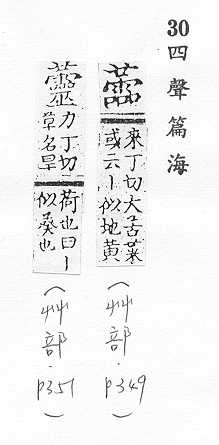 30四聲篇海
蘦
來丁切大苦葉
或云丨似地黃
(艸部·P349)
力丁切
草名旱
荷也曰丨
似葵也
(艸部·P351)